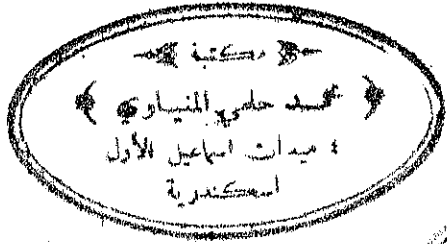 مكتبة
محمد حلمي المنياوي
٤ ميدان اسماعيل الأول
اسكندرية